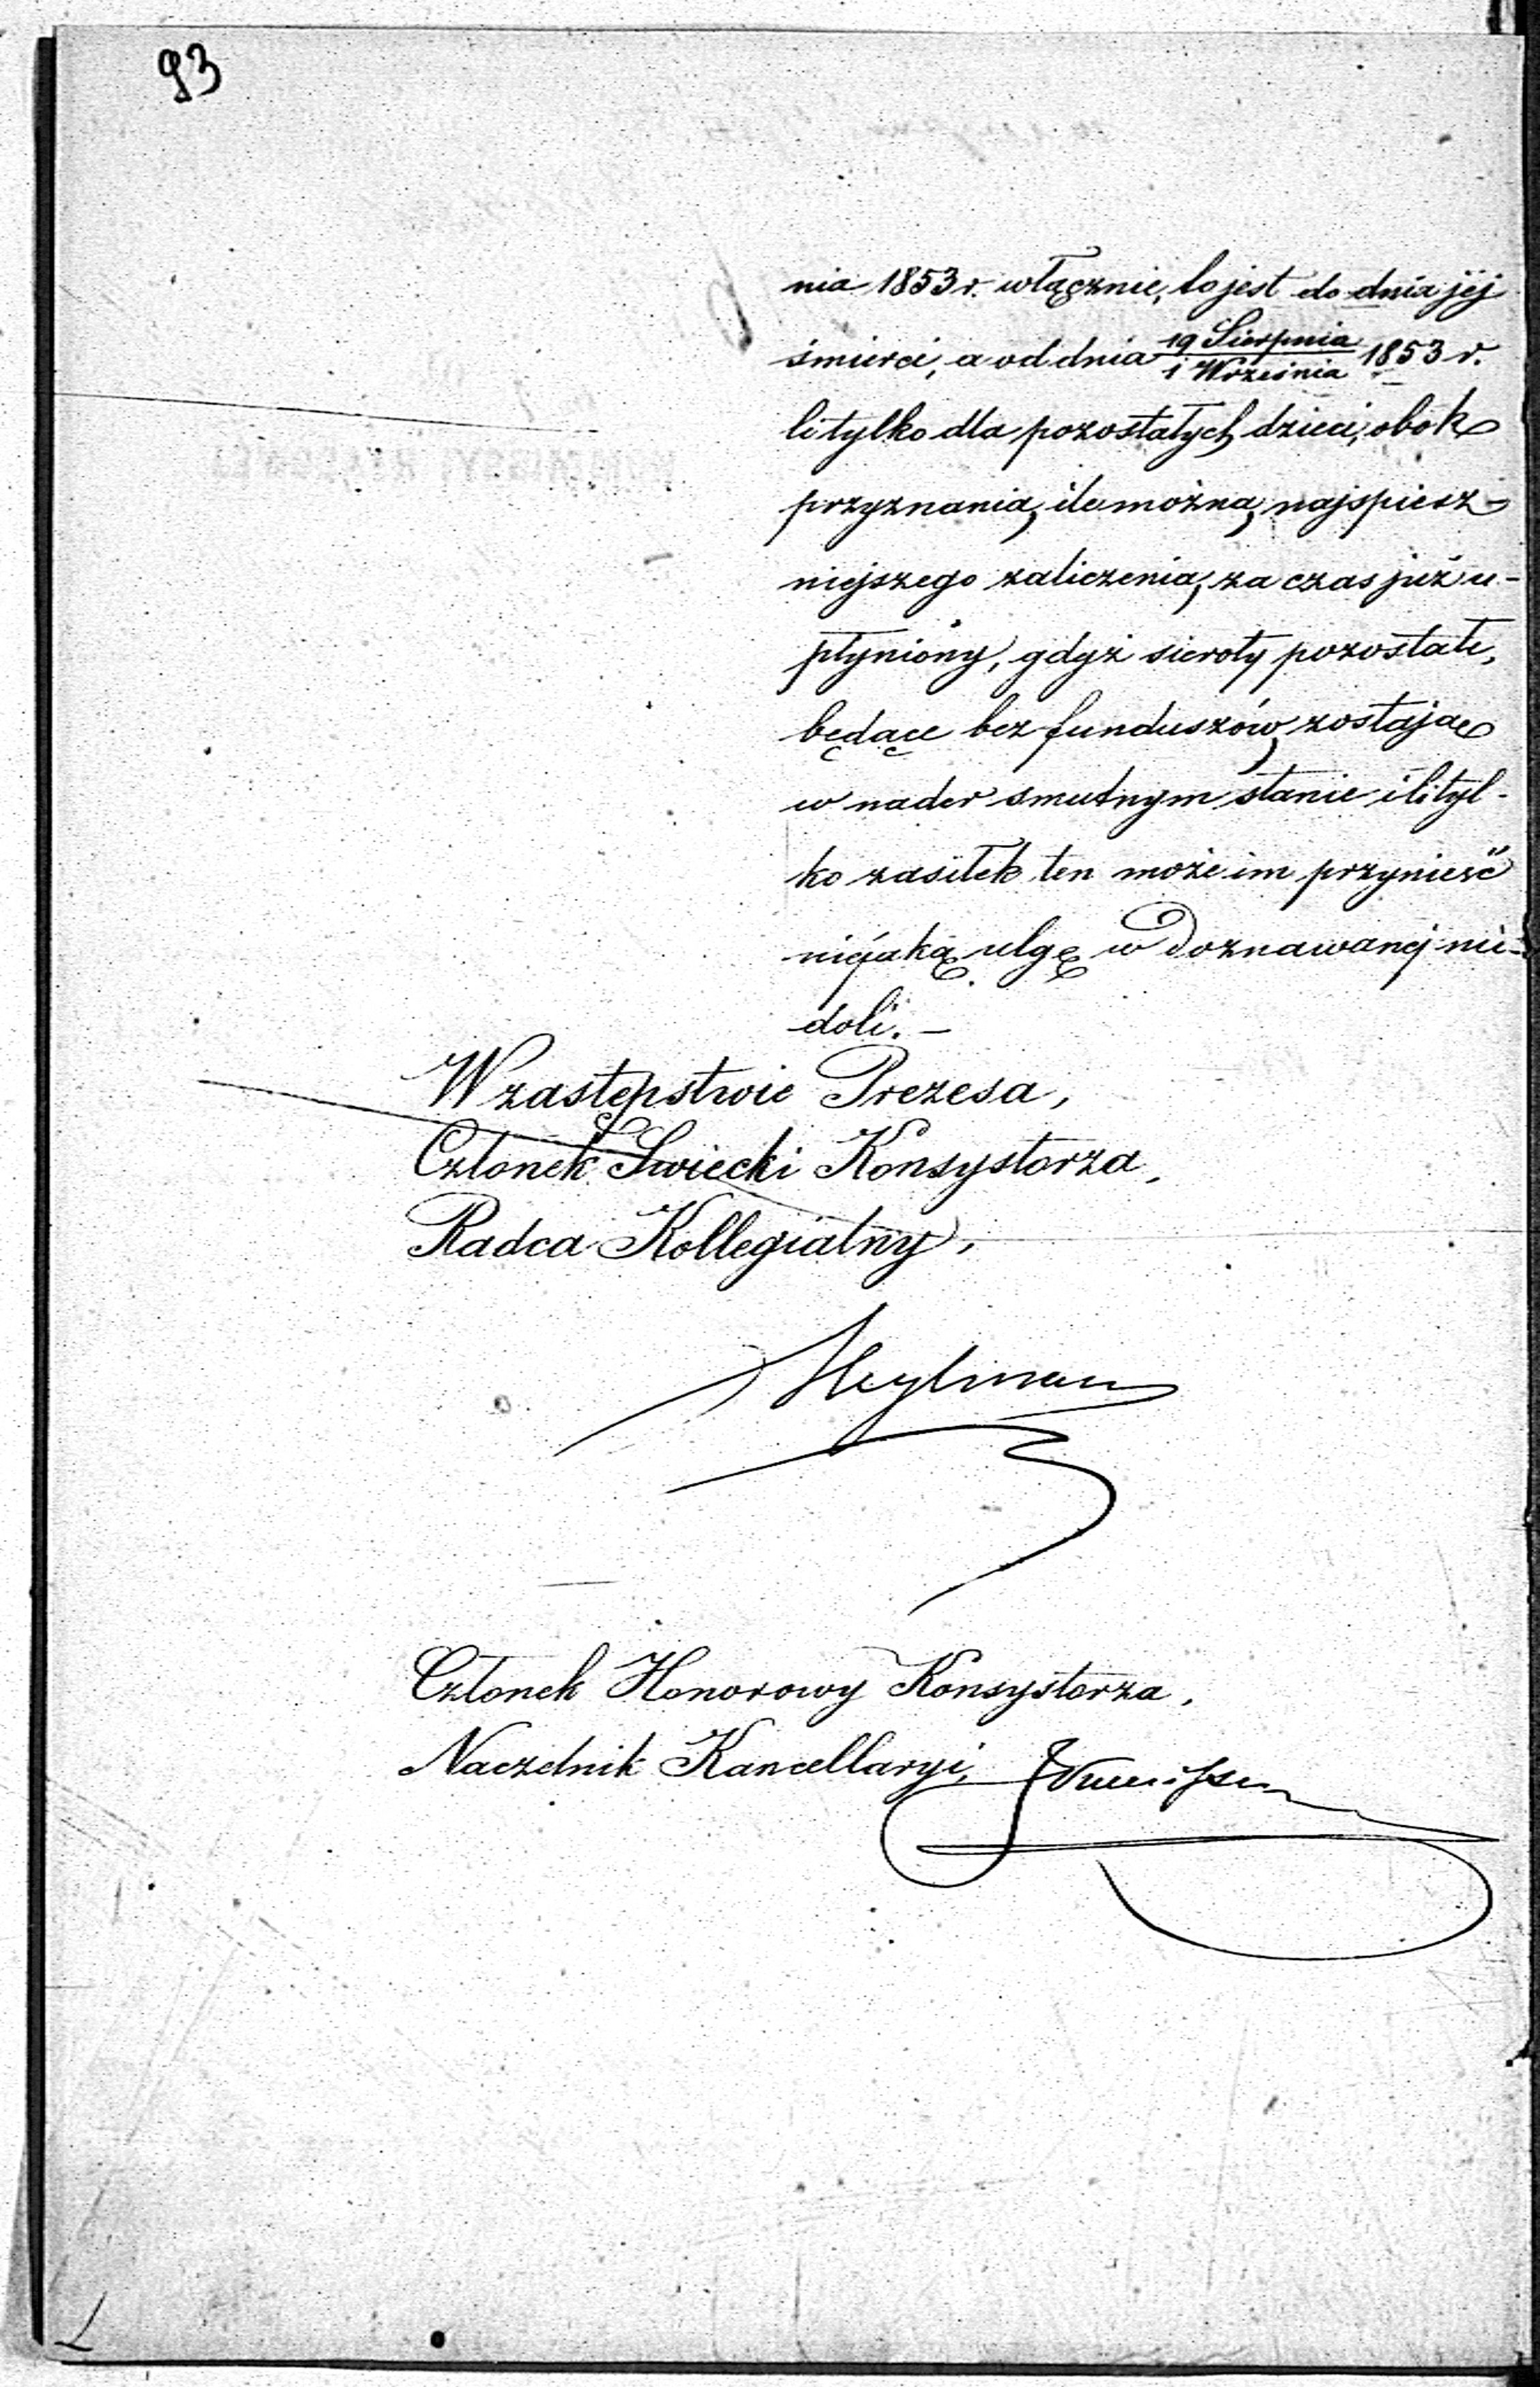 93
nia 1853 r. włącznie, to jest do dnia jéj
śmierci, a od dnia 19 Sierpnia / 1 Września 1853 r.
li tylko dla pozostałych dzieci, obok
przyznania, ile można, najspiesz-
niejszego zaliczenia, za czas już u-
płyniony, gdyż sieroty pozostałe,
będące bez funduszów, zostają
w nader smutnym stanie i li tyl-
ko zasiłek ten może im przynieść
niejaką ulgę w doznawanej nie-
doli. —
W zastępstwie Prezesa,
Członek Świecki Konsystorza,
Radca Kollegialny,
Heylman
Członek Honorowy Konsystorza,
Naczelnik Kancellaryi,